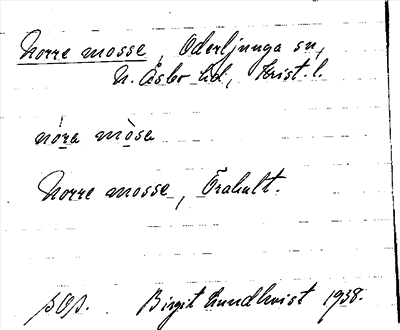 Norre mosse, Oderljunga sn,
N. Åsbo hd, Krist. l.
nóra mòsa
Norre mosse, Trahult.
Birgit Lundkvist 1938.